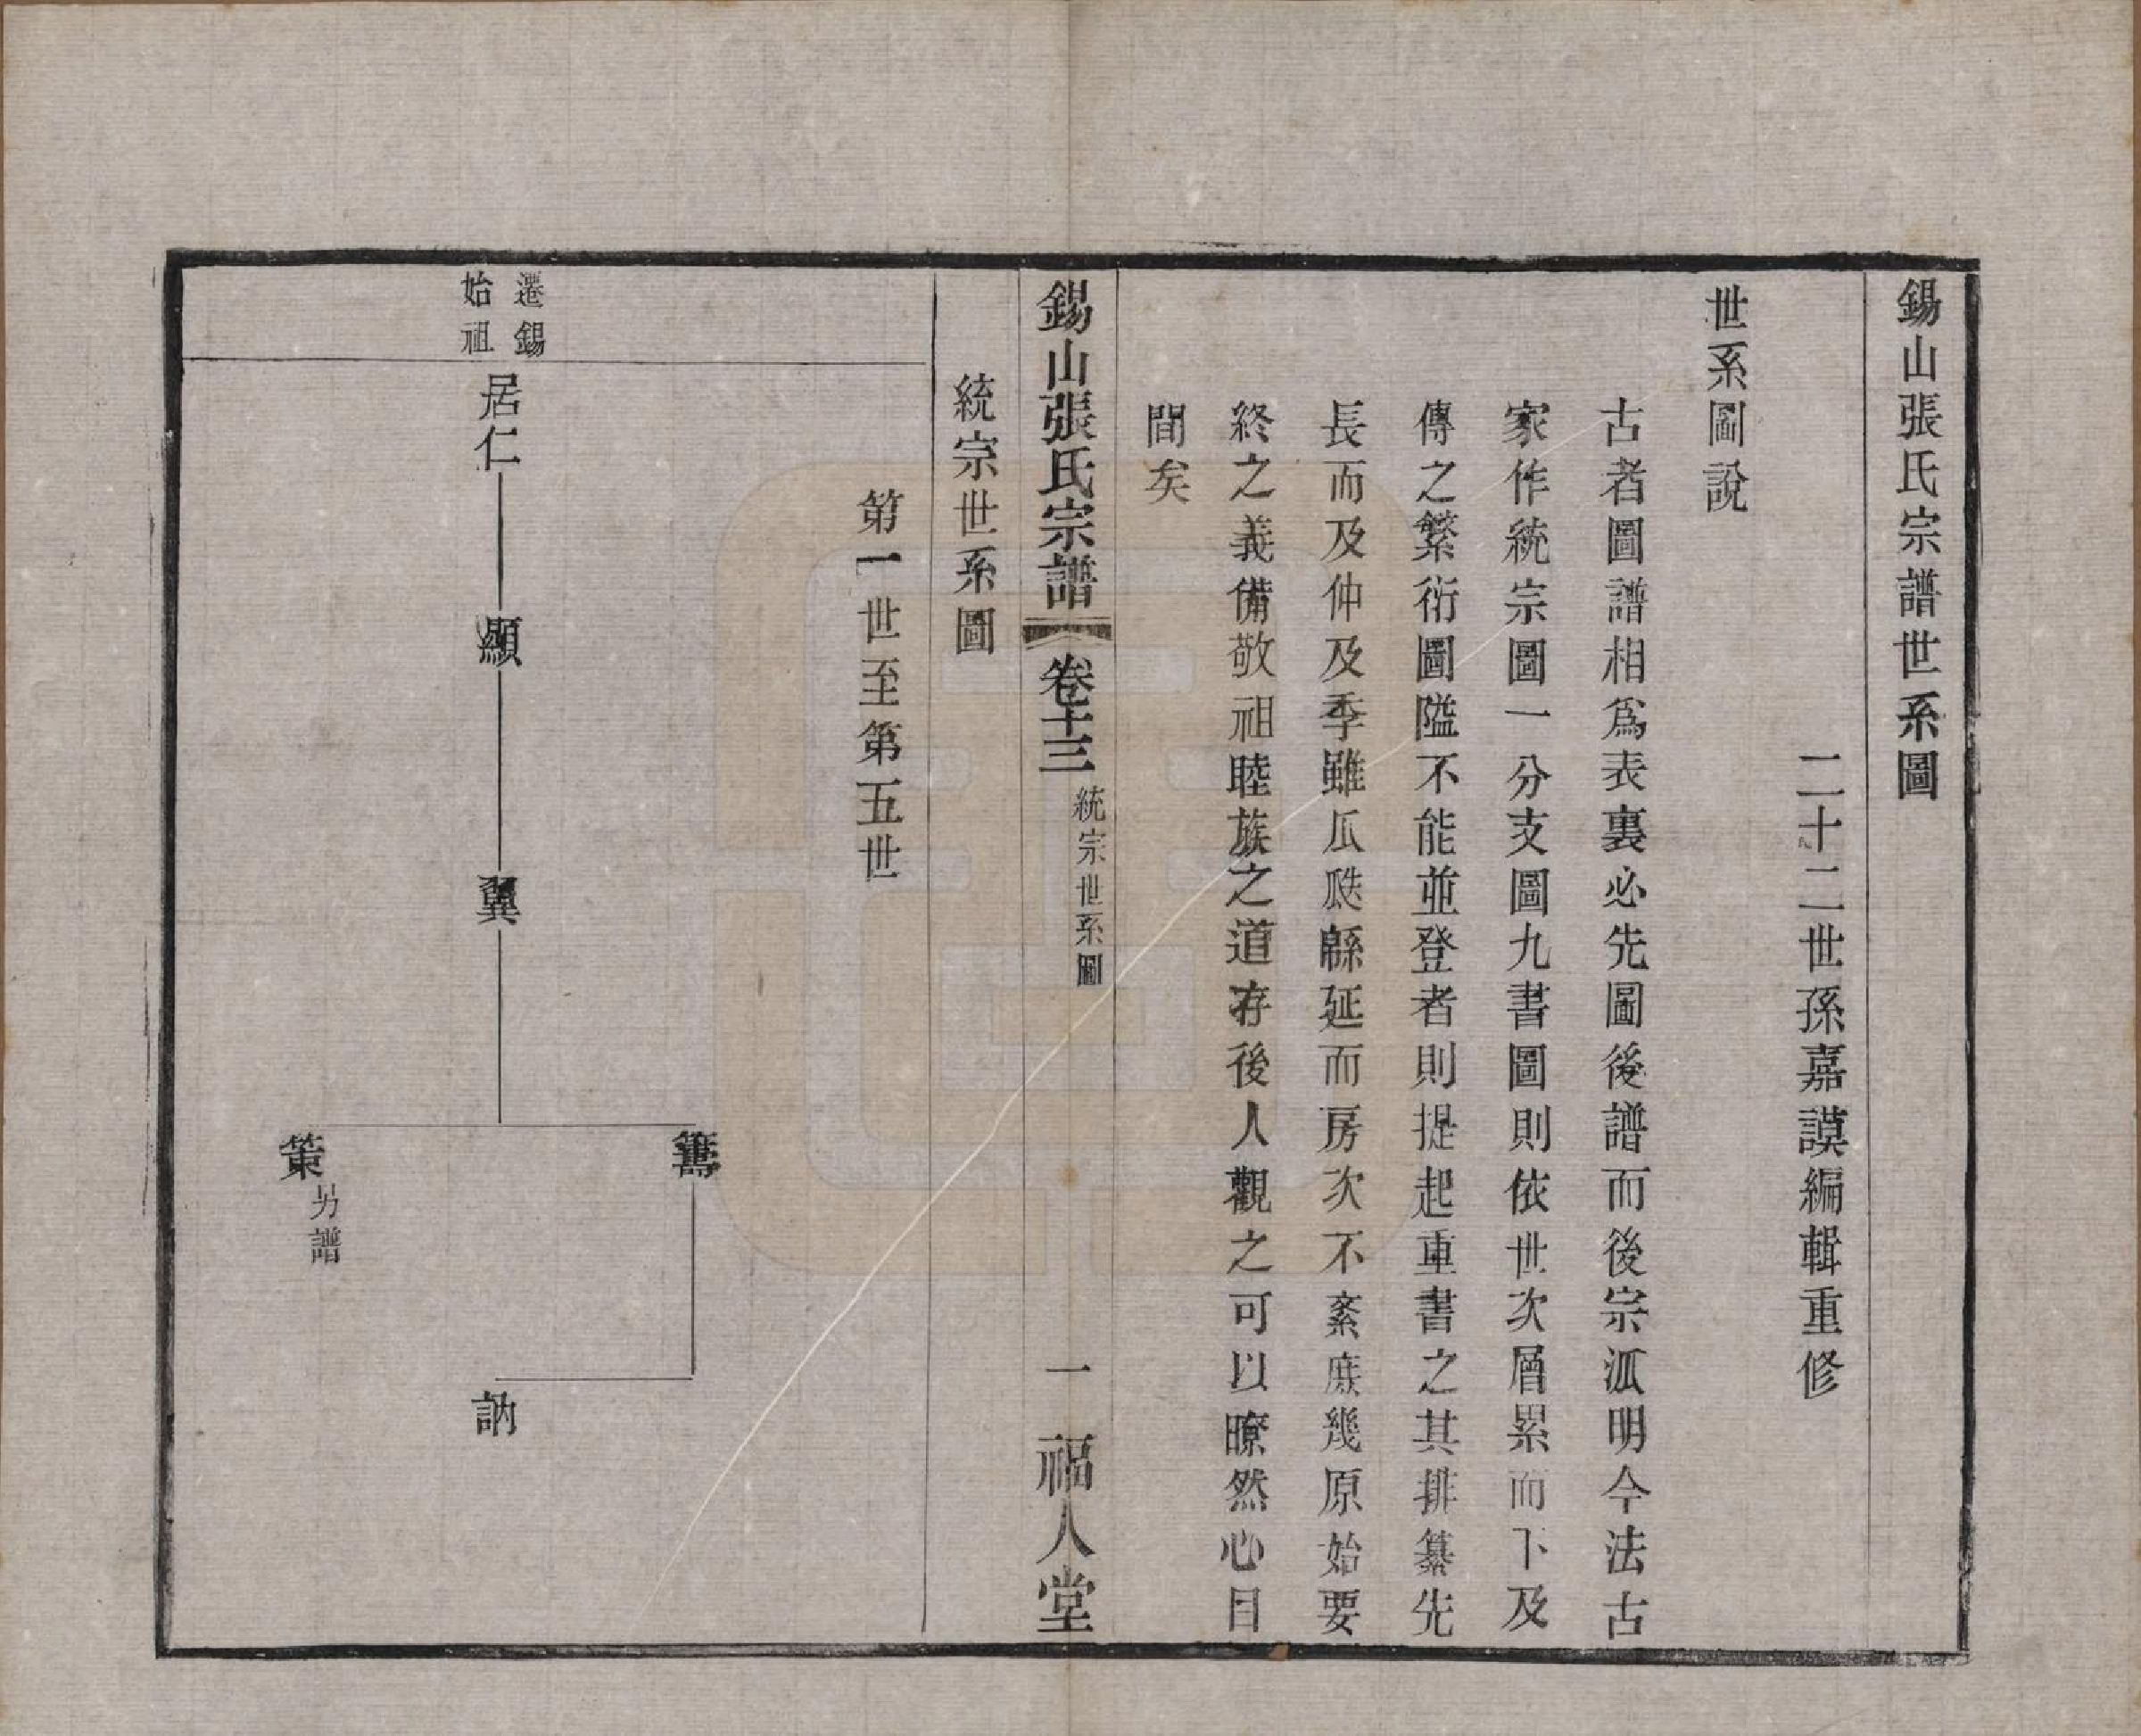 錫山張氏宗譜世系圖
二十二世孫嘉謨編輯重修
世系圖說
古者圖譜相爲表裏必先圖後譜而後宗派明今法古
家作統宗圖一分支圖九書圖則依世次層累而下及
傳之繁衍圖隘不能並登者則提起重書之其排纂先
長而及仲及季雖瓜瓞緜延而房次不紊庶幾原始要
終之義備敬祖睦族之道存後人觀之可以瞭然心目
間矣
錫山張氏宗譜 卷十三 統宗世系圖 一 福人堂
統宗世系圖
第一世至第五世
遷錫
始祖
居仁
顯
翼
籌
訥
策 另譜